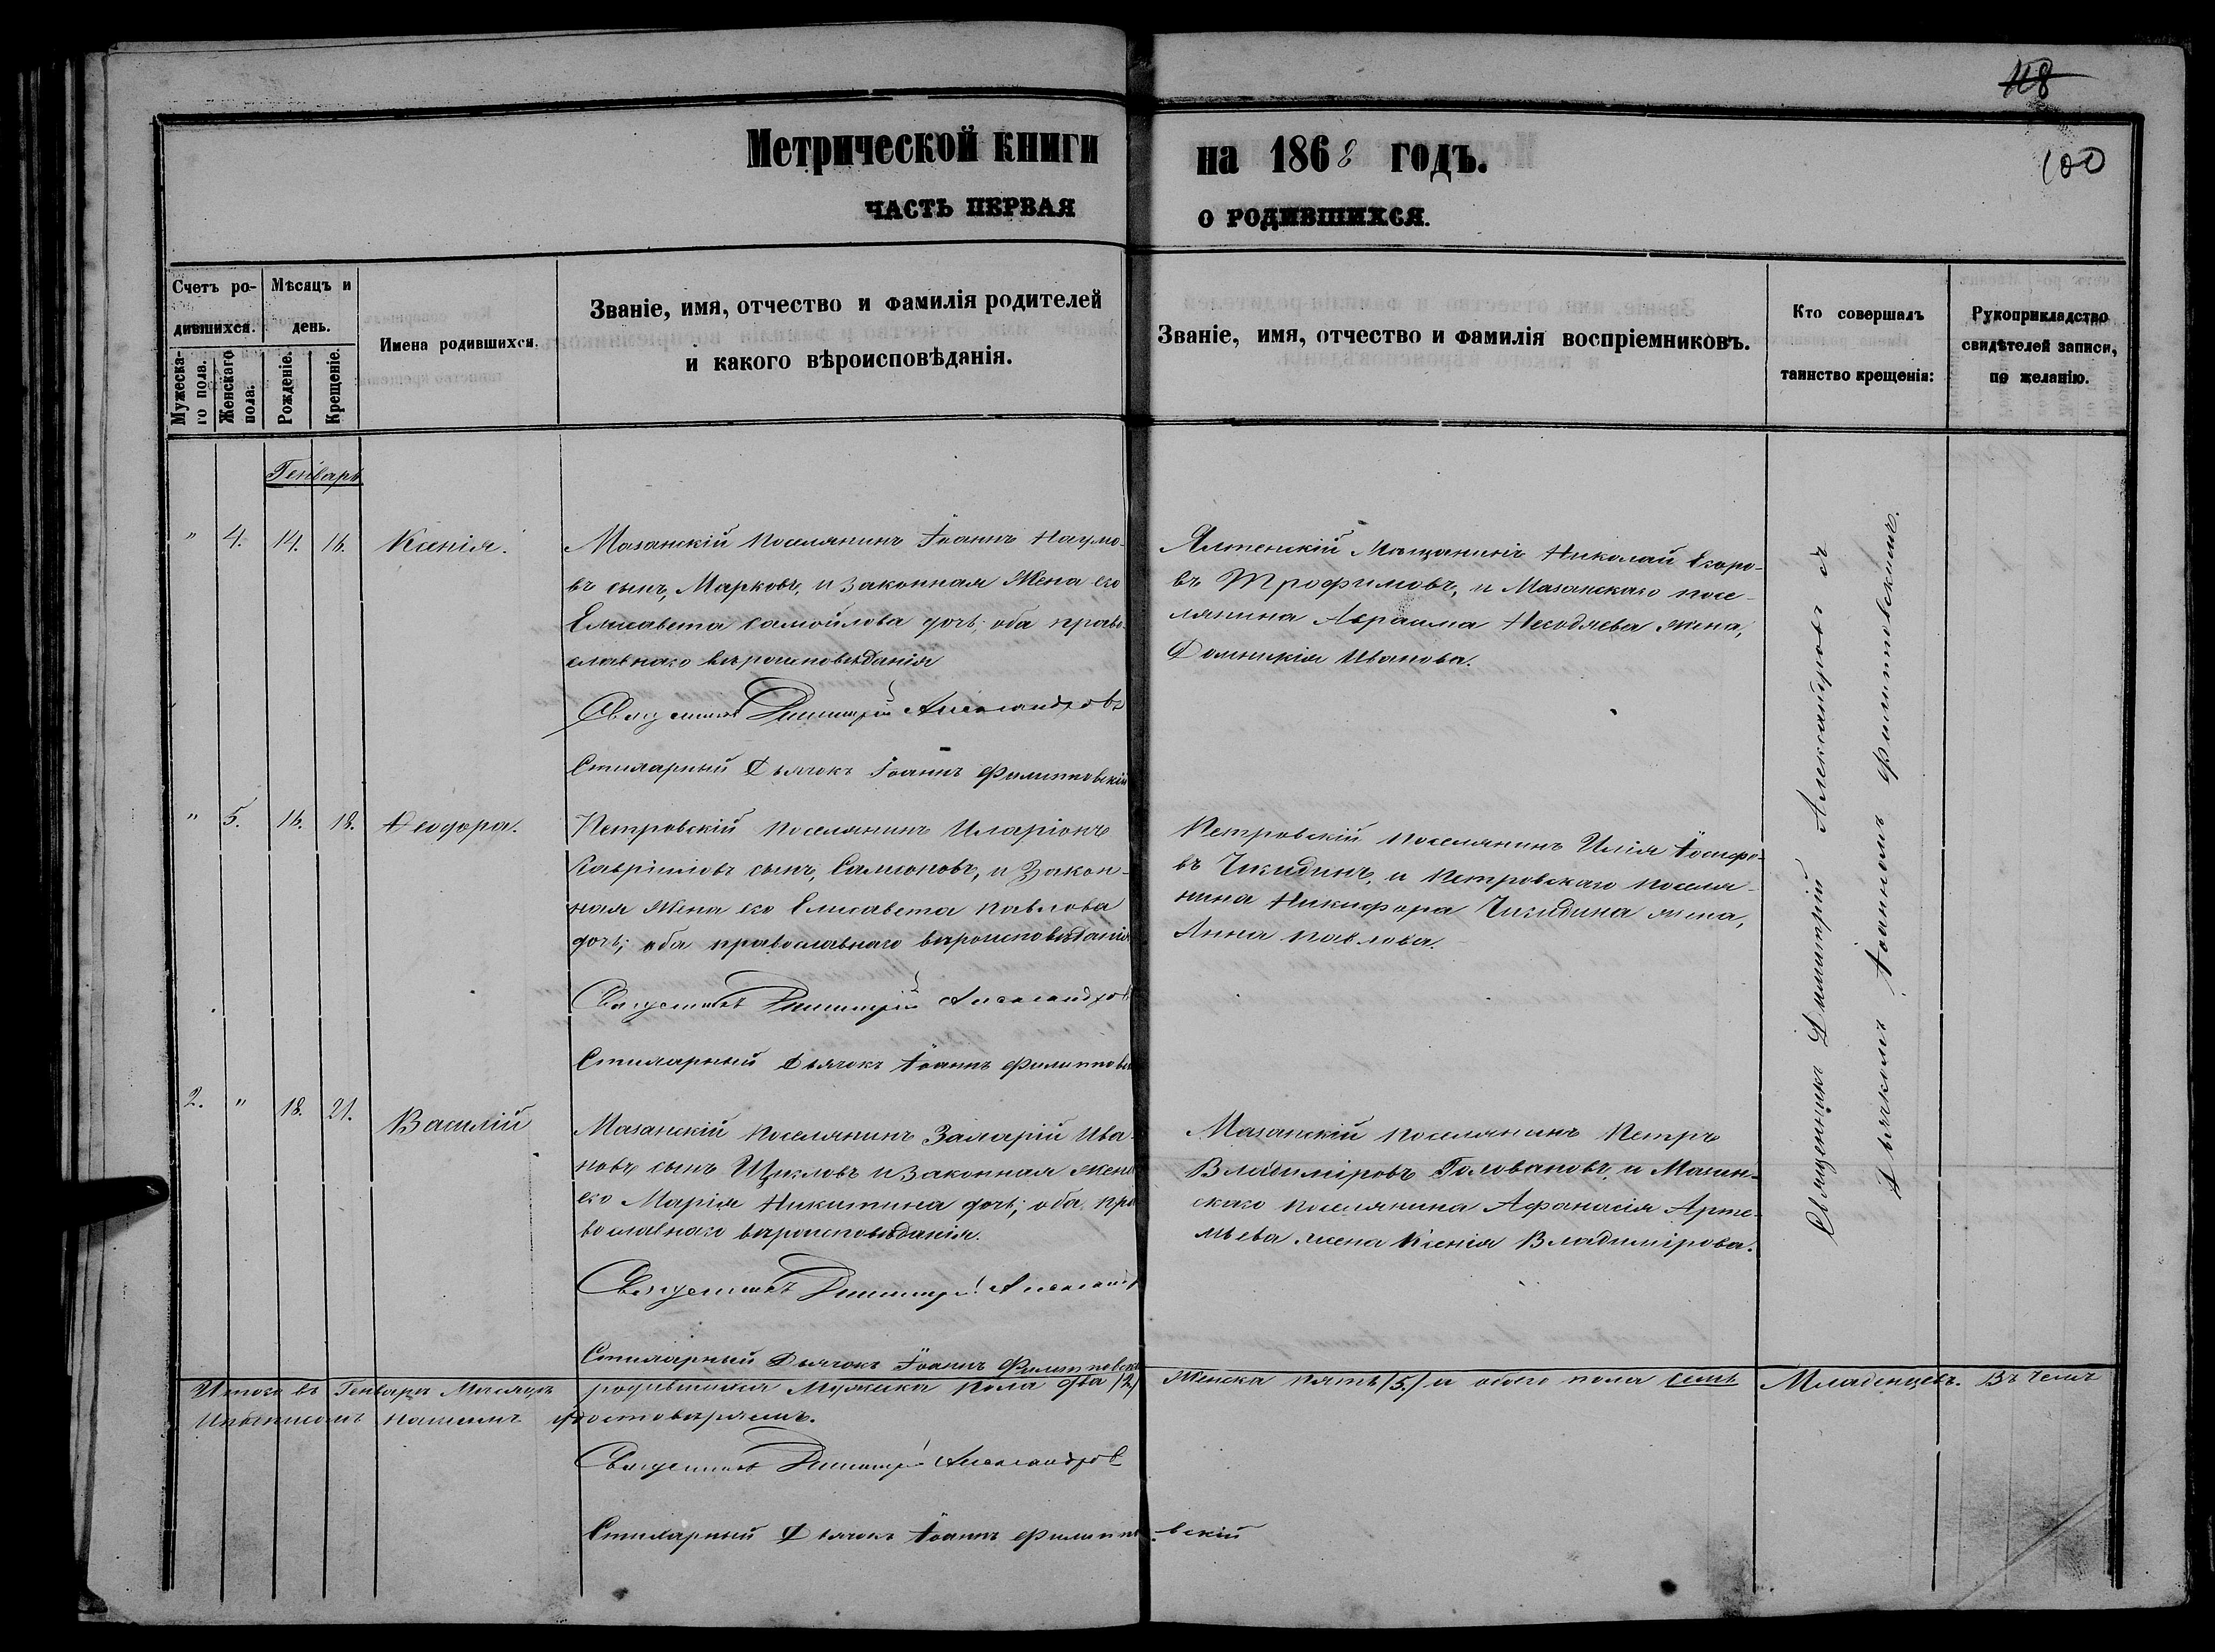 118
Метрической книги на 1868 годъ.
100
ЧАСТЬ ПЕРВАЯ О РОДИВШИХСЯ.
Счетъ ро-
дившихся.
Мужеска-
го пола.
Женскаго
пола.
Мѣсяцъ и
день.
Рожденіе.
Крещеніе.
Имена родившихся.
Званіе, имя, отчество и фамилія родителей
и какого вѣроисповѣданія.
Званіе, имя, отчество и фамилія воспріемниковъ.
Кто совершалъ
таинство крещенія:
Рукоприкладство
свидѣтелей записи,
по желанію.
Генварь
" 4. 14. 16. Ксенія.
Мазанскій поселянинъ Іоаннъ Наумо-
въ сынъ, Марковъ, и законная жена его
Елисавета Самойлова дочь; оба право-
славнаго вѣроисповѣданія
Священникъ Димитрій Александровъ
Стихарный Дьячокъ Іоаннъ Филипповскій
Ялтенскій Мѣщанинъ Николай Егоро-
въ Трофимовъ, и Мазанскаго посе-
лянина Авраама жена,
Домникія Иванова.
" 5. 16. 18. Ѳеодора.
Петровскій поселянинъ Иларіонъ
Гавріиловъ сынъ, Самсоновъ, и Закон-
ная жена его Елисавета Павлова
дочь; оба православнаго вѣроисповѣданія
Священникъ Димитрій Александров
Стихарный Дьячокъ Іоаннъ Филиппов
Петровскій поселянинъ Илія Іосифо-
въ Чикидинъ, и Петровскаго поселя-
нина Никифора Чикидина жена,
Анна Павлова.
2. " 18. 21. Василій
Мазанскій поселянинъ Захарій Ива-
новъ сынъ Щикловъ и законная жена
его Марія Никитина дочь; оба пра
вославнаго вѣроисповѣданія.
Священникъ Димитрій Александр
Стихарный Дьячокъ Іоаннъ Филипповск
Мазанскій поселянинъ Петръ
Владиміровъ Головановъ, и Мазан-
скаго поселянина Афанасія Арте-
мьева жена Ксенія Владимірова.
Священникъ Димитрій Александровъ съ
Дьячкомъ Іоанномъ Филипповскимъ.
Итого въ Генварѣ Мѣсяцѣ родившихся Мужеска пола два /2/ Женска пять /5/ и обоего пола семь Младенцевъ. Въ чемъ
И подписомъ нашимъ удостовѣряемъ.
Священникъ Димитрій Александров
Стихарный Дьячокъ Іоаннъ Филиппо-вскій